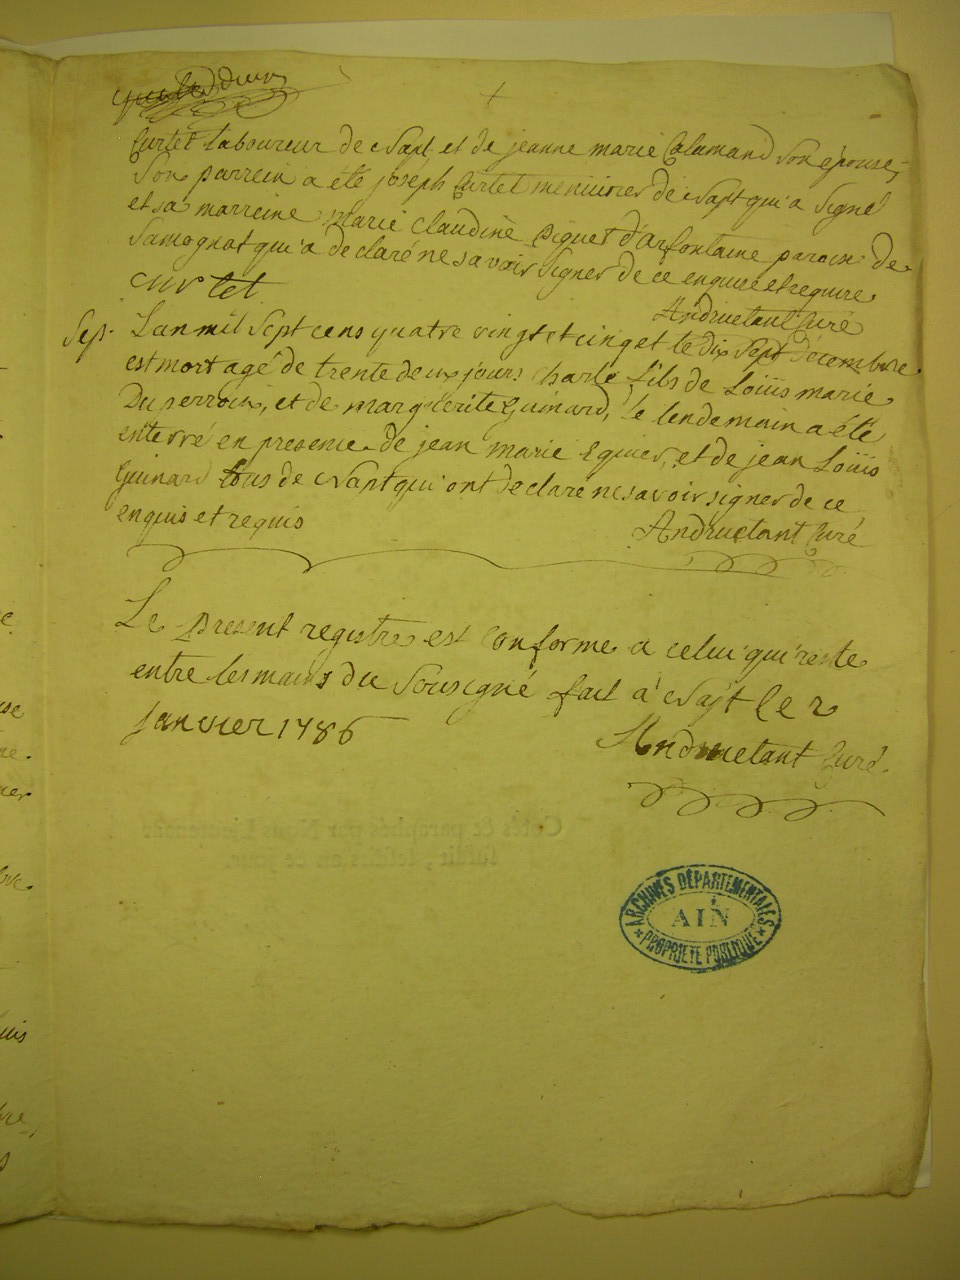 Curtet laboureur de Napt, et de jeanne marie Calamand son épouse,
Son parrein a été joseph Curtet menuisier de Napt qui a signé
et sa marreine marie claudine piguet d'arfontaine paroisse de
Samognat qui a déclaré ne savoir signer de ce enquise et requise
curtet
Andruetant Curé
Sep. L'an mil sept cens quatre vingt et cinq et le dix sept décembre
est mort agé de trente deux jours Charle fils de Loüis marie
Duperroux, et de marguerite Guinard, le lendemain a été
enterré en presence de jean marie Equier, et de jean Loüis
Guinard tous de Napt qui ont déclaré ne savoir signer de ce
enquis et requis
Andruetant Curé
Le present registre est conforme a celui qui reste
entre les mains du Sousigné fait à Napt le 2
janvier 1786
Andruetant Curé.
Cotés & paraphés par Nous Lieutenant
ARCHIVES DÉPARTEMENTALES
AIN
PROPRIETE PUBLIQUE